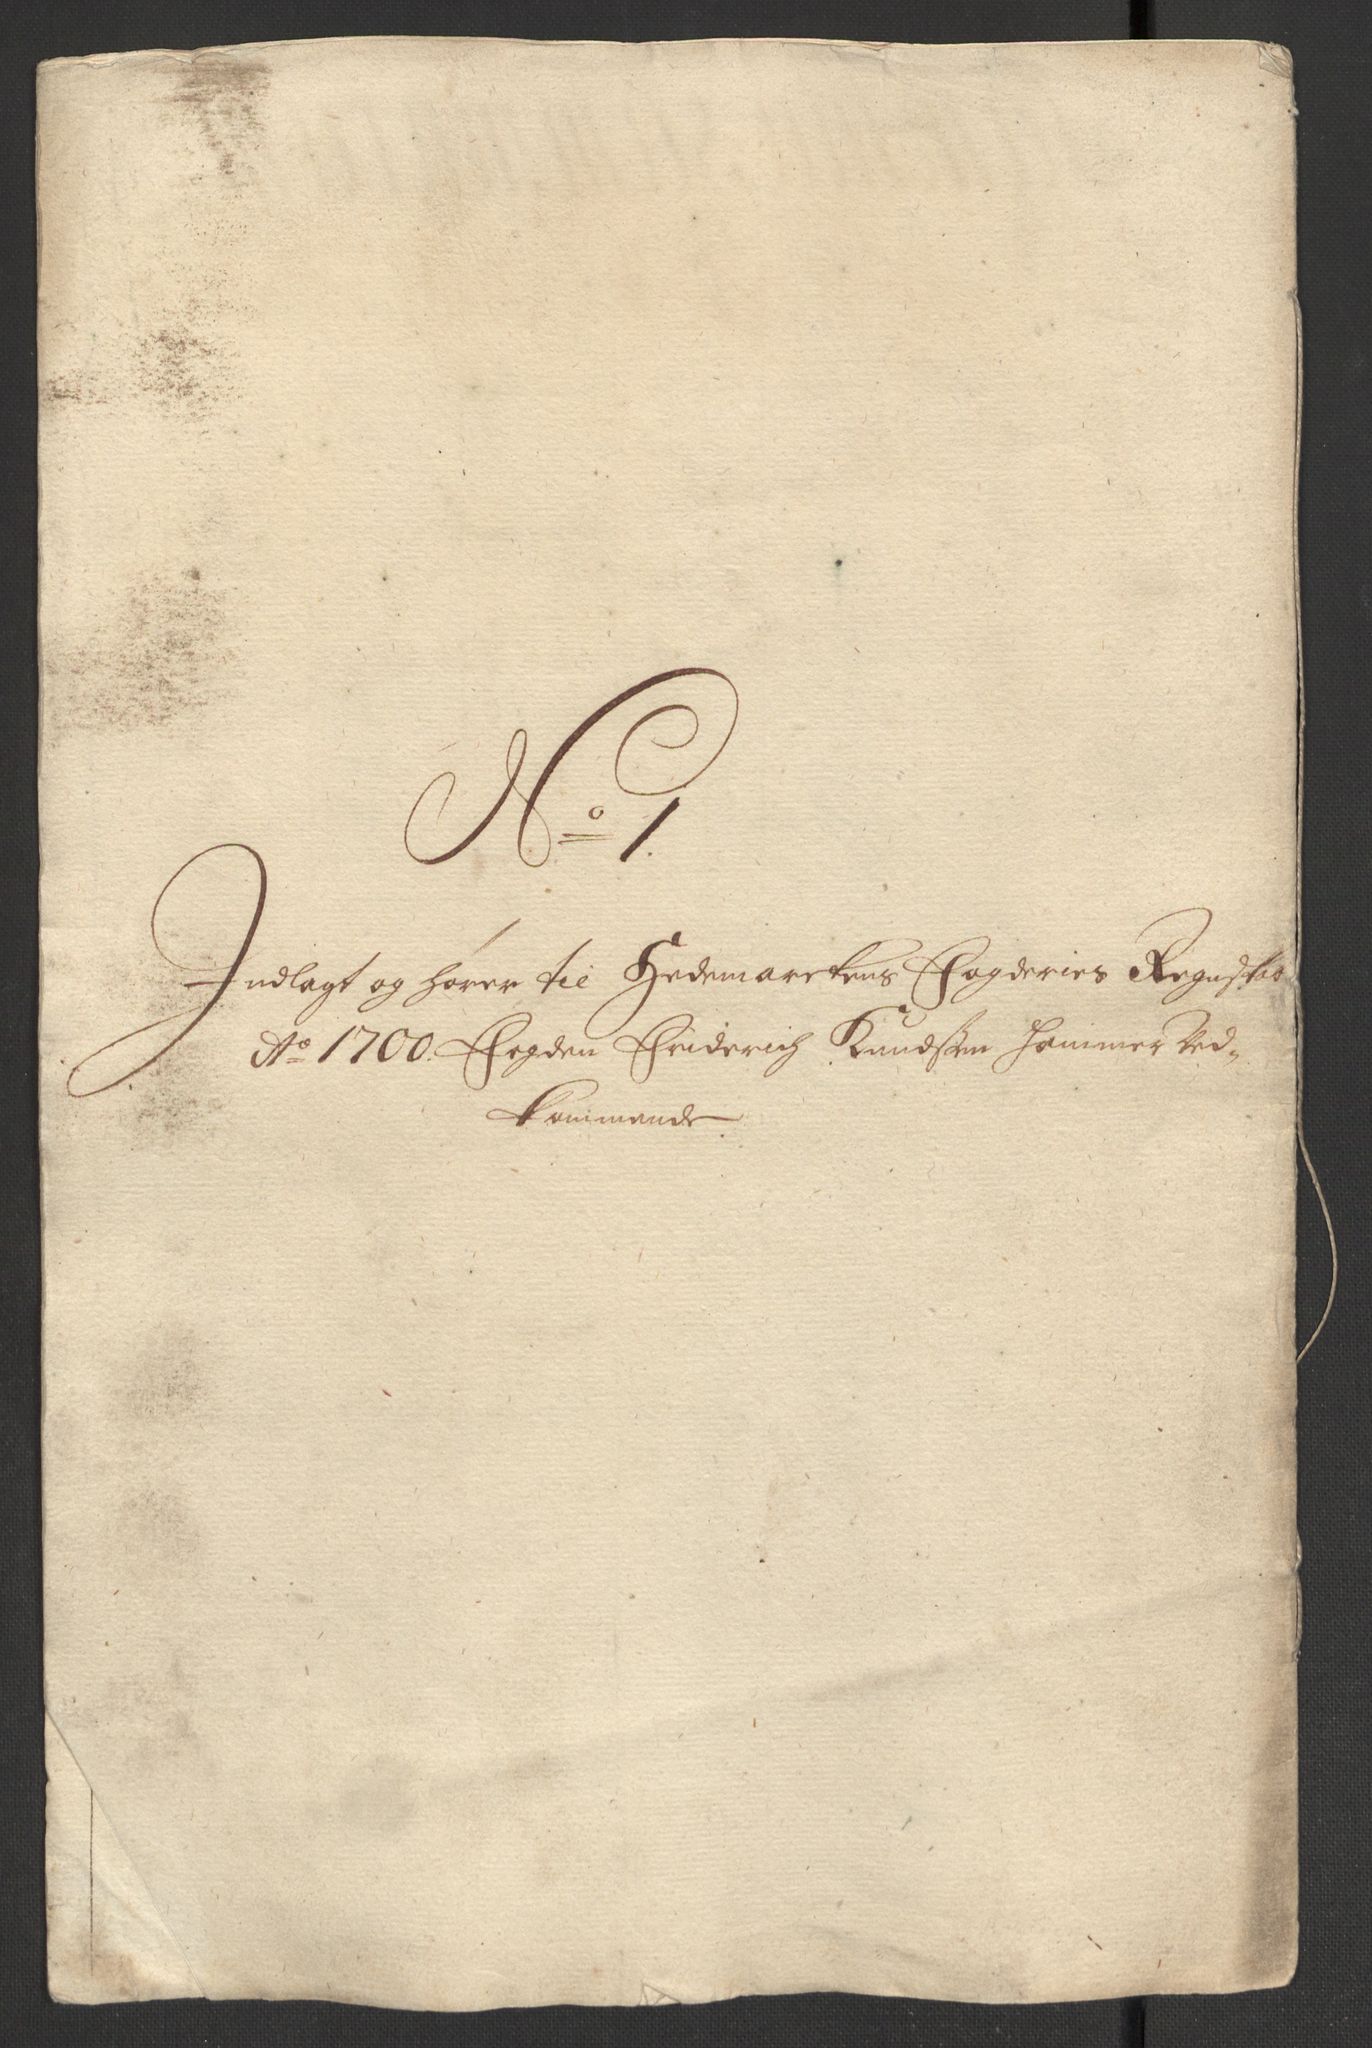 No 1.
Indlagt og hører til Hedemarckens Fogderies Regnskab
Ao 1700. Fogden Friderich Knudsen Hammer Ved-
kommende